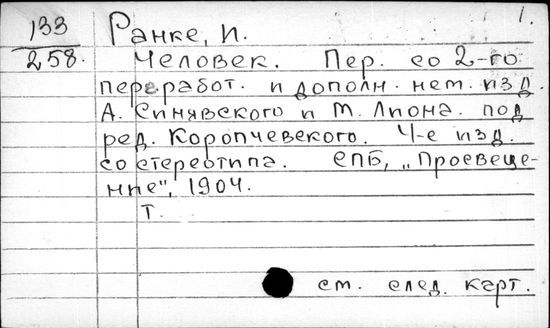 1.
133
258.
Ранке, И.
Человек. Пер. со 2-го
переработ. и дополн. нем. изд.
А. Синявского и М. Лиона. под
ред. Коропчевского. 4-е изд.
со стереотипа. СПБ, „Просвеще-
ние", 1904.
Т.
см. след. карт.